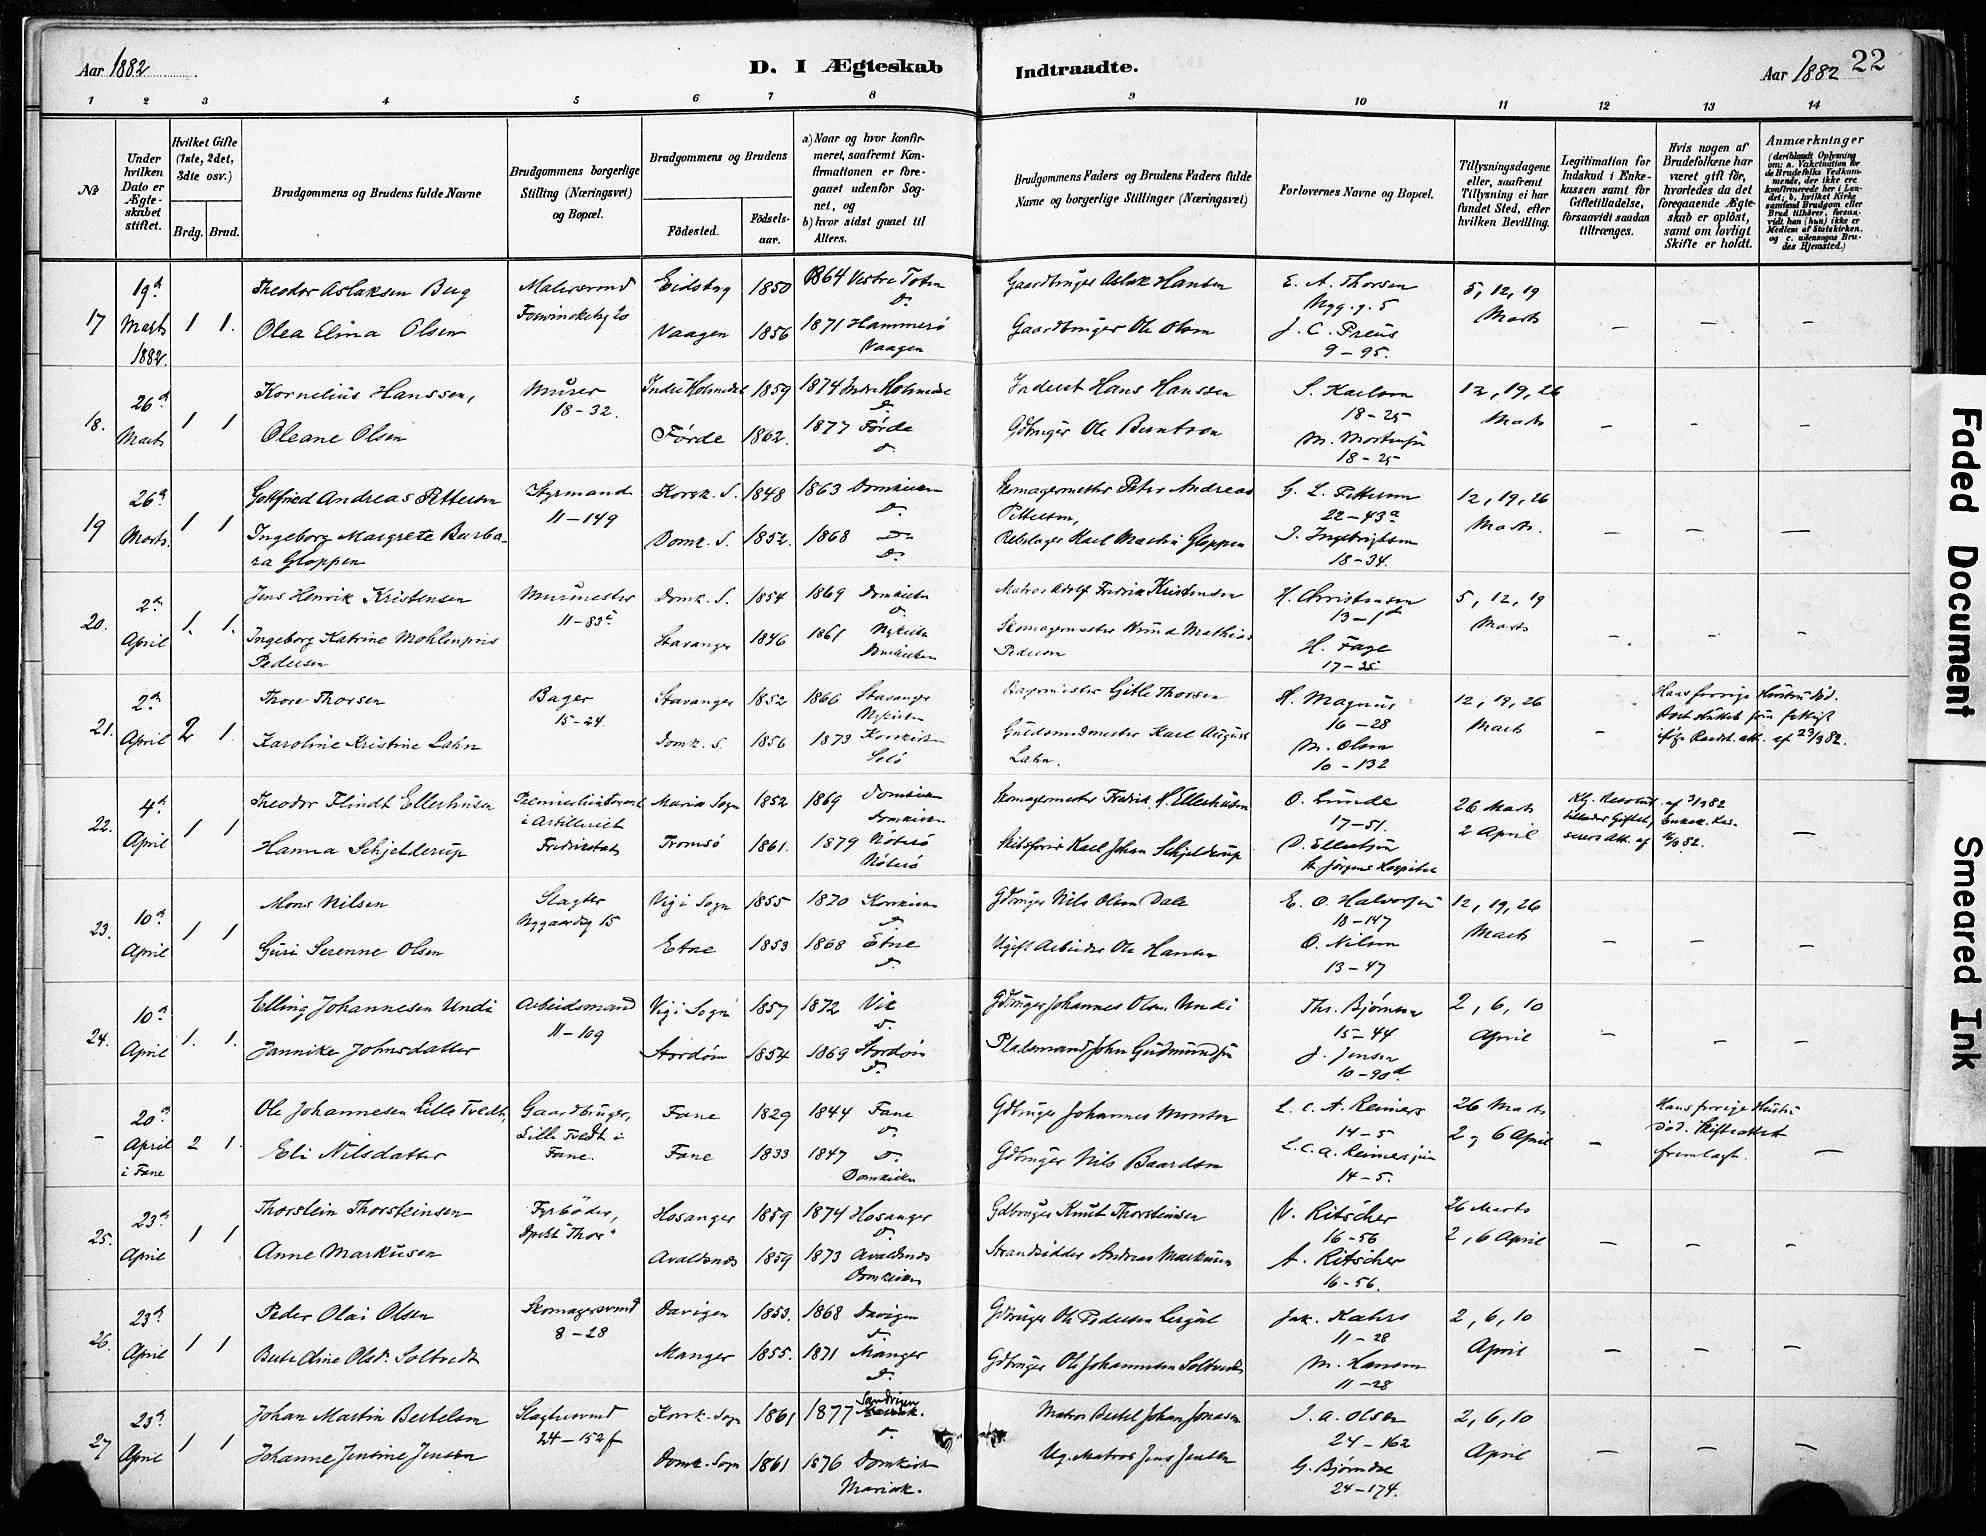 Aar 1882
D. I Ægteskab Indtraadte.
Aar 1882 22
1 2 3 4 5 6 7 8 9 10 11 12 13 14
No
Under hvilken Dato er Ægteskabet stiftet.
Hvilket Gifte (1ste, 2det, 3die osv.)
Brdg. Brud.
Brudgommens og Brudens fulde Navne
Brudgommens borgerlige Stilling (Næringsvei) og Bopæl.
Brudgommens og Brudens
Födested.
Födsels-aar.
a) Naar og hvor konfirmeret, saafremt Konfirmationen er foregaaet udenfor Sognet, og
b) hvor sidst gaaet til Alters.
Brudgommens Faders og Brudens Faders fulde Navne og borgerlige Stillinger (Næringsvei)
Forlovernes Navne og Bopæl.
Tillysningsdagene eller, saafremt Tillysning ei har fundet Sted, efter hvilken Bevilling.
Legitimation for Indskud i Enkekassen samt for Giftetilladelse, forsaavidt saadan tiltrænges.
Hvis nogen af Brudefolkene har været gift før, hvorledes da det foregaaende Ægteskab er oplöst, samt om lovligt Skifte er holdt.
Anmærkninger
(deriblandt Oplysning om: a. Vakcination for de Brudefolks Vedkommende, der ikke ere konfirmerede her i Landet; b. hvilket Kirkesamfund Brudgom eller Brud tilhörer, forsaavidt han (hun) ikke er Medlem af Statskirken, og c. udensogns Brudes Hjemsted.)
17 19d Marts 1882. 1 1.
Theodor Aslaksen Berg Malersvend Eidsbug 1850 1864 Vestre Toten D.
Gaardbruger Aslak Hansen E. A. Thorsen Nyg.g. 5 5, 12, 19 Marts
Olea Elina Olsen Vaagen 1856 1871 Hammerö Vaagen
Gaardbruger Ole Olsen J. C. Preus 9 - 95. — — —
18. 26d Marts 1 1
Kornelius Hanssen, Murer 18 - 32. Indre Holmedal 1859 1874 Indre Holmedal D.
Inderst Hans Hanssen S. Karlsen 18 - 25 12, 19, 26 Marts
Oleane Olsen Førde 1862. 1877 Førde D.
Gdbruger Ole Berntsen 18 - 25 — — —
19 26d Marts. 1 1
Gottfried Andreas Pettersen Styrmand 11 - 149 Korsk. S. 1848 1863 Domkirken D.
Skomagermester Peter Andreas Pettersen, G. L. Pettersen 22 - 43a 12, 19, 26 Marts.
Ingeborg Margrete Barbara Gloppen Domk. S. 1852. 1868 D. D.
Rebslager Karl Martin Gloppen I. Ingebrigtsen 18 - 34. — — —
20. 2d April 1. 1.
Jens Henrik Kristensen Murmester 11 - 83c Domk. S. 1854 1869 Domkirken D.
Matros Adolf Fredrik Kristensen H. Christensen 13 - 1d 5, 12, 19 Marts
Ingeborg Katrine Mohlenpris Pedersen Stavanger 1846 1861 Nykirken Domkirken
Skomagermester Knud Mathias Pedersen H. Fage 17 - 35 — — —
21. 2d April 2 1
Thore Thorsen Bager 15 - 24. Stavanger 1852 1866 Stavanger Nykirken
Bagermester Gitle Thorsen H. Magnus 16 - 28 12, 19, 26 Marts
Karoline Kristine Lahn Domk. S. 1856 1873 Korskirken
Guldsmedmester Karl August Lahn. M. Olsen 10 - 132 —
Hans forrige Hustru död.
22. 4d April 1 1
Theodor Flindt Ellerhusen Premierlieutenant i Artilleriet Fredrikstad Mariæ Sogn 1852 1869 Domkirken Domkirken
Skomagermester Fredrik N. Ellerhusen O. Lunde 17 - 51. 26 Marts 2 April
Hanna Schjelderup Tromsö 1861. 1879 Nöterö Nöterö
Skibsförer Karl Johan Schjelderup St. Jörgens Hospital —
23. 10d April 1 1
Mons Nilsen Slagter Nygaardsg 15 Vig i Sogn 1855 1870 Korskirken D.
Gdbruger Nils Olsen Dale E. O. Halvorsen 18 - 147 12, 19, 26 Marts
Guri Serenne Olsen Etne 1853 1868 Etne D.
Ugift Arbeider Ole Hansen O. Nilsen 13 - 47 — — —
24. 10d April 1. 1.
Elling Johannesen Undi Arbeidsmand 11 - 109 Vig i Sogn 1857 1872 Vik D.
Gdbruger Johannes Olsen Undi Ths. Bjørnsen 15 - 44 2, 6, 10 April
Jannike Johnsdatter Stordöen 1854 1869 Stordöen D.
Pladsmand John Gudmundsen J. Jensen 10 - 90d. — — —
— 20d April i Fane 2 1.
Ole Johannesen Lille Tvedt, Gaardbruger, Lille Tvedt i Fane. Fane 1829 1844 Fane D.
Gdbruger Johannes Monsen L. C. A. Reimers 14 - 5 26 Marts 2, 6 April
Eli Nilsdatter Fane 1833 1847 D. Domkirken
Gdbruger Nils Baardsen L. C. A. Reimers jun 14 - 5. —
Hans forrige Hustru död. Skifteattest fremlagt. —
25. 23d April 1 1
Thorstein Thorsteinsen Fyrböder, Dpskb "Thor" Hosanger 1859 1874 Hosanger D.
Gdbruger Knut Thorsteinsen N. Ritscher 16 - 56 26 Marts 2, 6 April
Anne Markusen Avaldsnes 1859 1873 Avaldsnes Domkirken
Strandsidder Andreas Markusen A. Ritscher 16 - 56. — — —
26. 23d April 1 1
Peder Olai Olsen Skomagersvend 8 - 28 Davigen 1853. 1868 Davigen D.
Gdbruger Ole Pedersen Jak. Kahrs 11 - 28 2, 6, 10 April
Berte Oline Olsd. Soltvedt Manger 1855. 1871 Manger D.
Gdbruger Ole Johannesen Soltvedt M. Hansen 11 - 28 — — —
27 23d April 1 1
Johan Martin Bertelsen Slagtersvend 24 - 152 f Korsk. Sogn 1861 1877 Sandviken D.
Matros Bertel Johan Jonasen I. A. Olsen 24 - 162 2, 6, 10 April
Johanne Jensine Jensen Domk. Sogn 1861 1876 Domkirken Mariæk.
Ug. Matros Jens Jensen G. Bjørndal 24 - 174. — — —
Faded Document
Smeared Ink